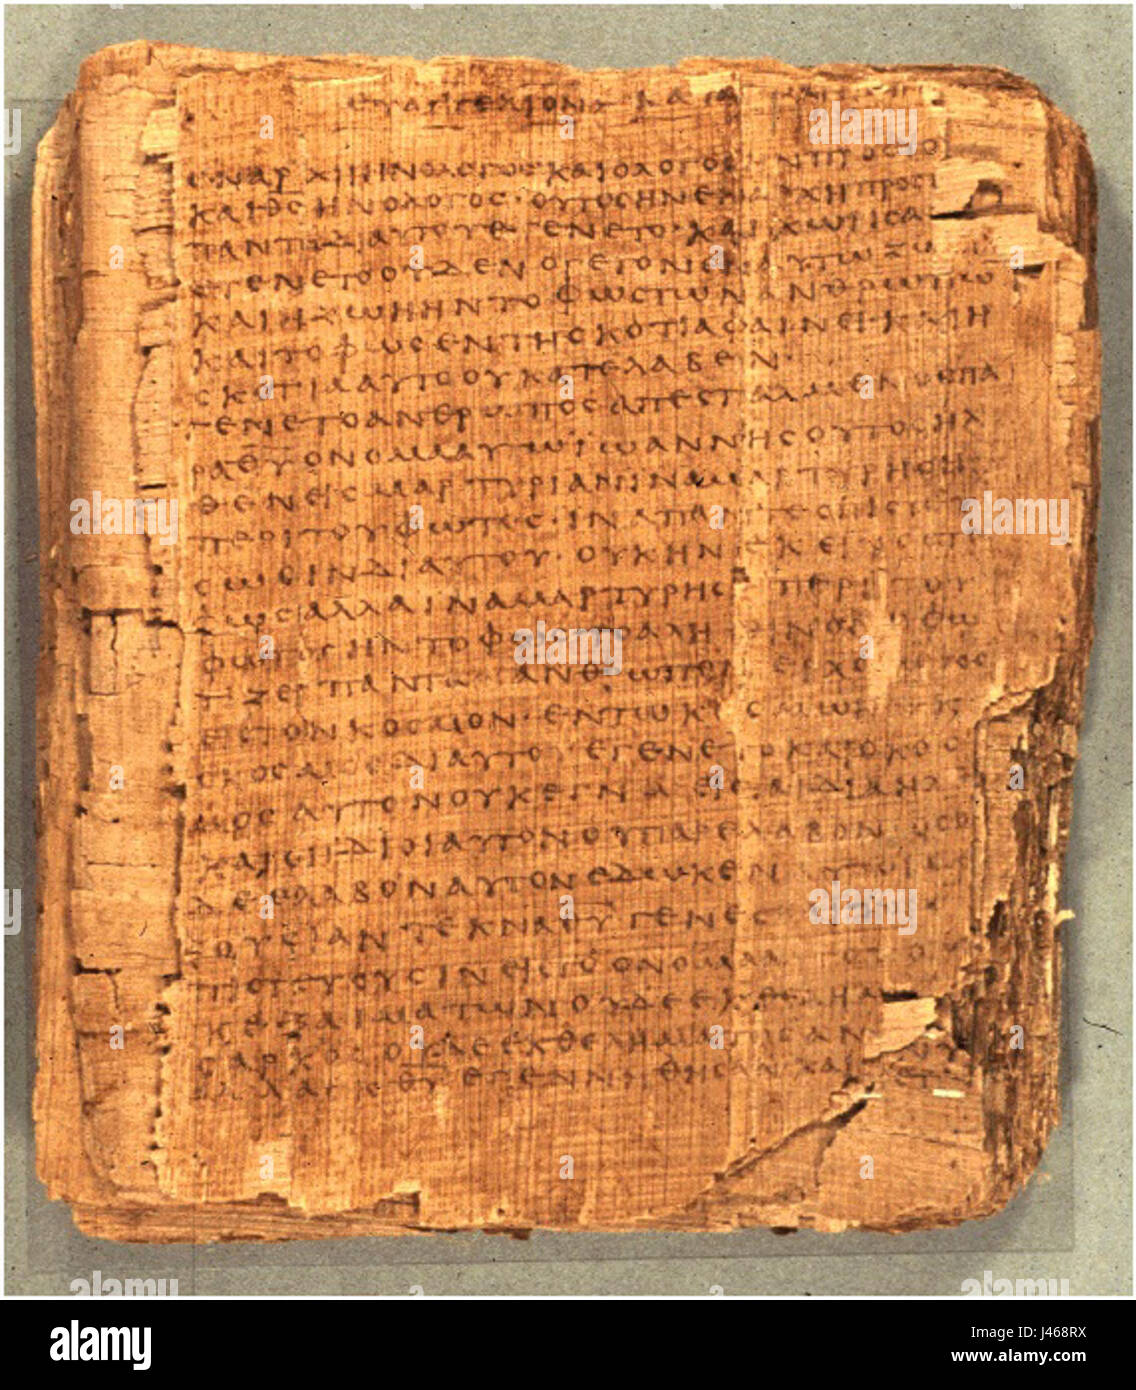 ΕΥΑΓΓΕΛΙΟΝ ΚΑΤΑ
ΕΝΑΡΧΗΗΝΟΛΟΓΟΣΚΑΙΟΛΟΓΟΣΗΝΠΡΟΣΤΟ
ΚΑΙΘ̅Σ̅ΗΝΟΛΟΓΟΣ·ΟΥΤΟΣΗΝΕΝΑΡΧΗΠΡΟΣΤ
ΠΑΝΤΑΔΙΑΥΤΟΥΕΓΕΝΕΤΟ·ΚΑΙΧΩΡΙΣΑ
ΕΓΕΝΕΤΟΟΥΔΕΝΟΓΕΓΟΝΕΝΕΝΑΥΤΩΖΩ
ΚΑΙΗΖΩΗΗΝΤΟΦΩΣΤΩΝΑΝΘΡΩΠΩ
ΚΑΙΤΟΦΩΣΕΝΤΗΣΚΟΤΙΑΦΑΙΝΕΙ·ΚΑΙΗ
ΣΚΟΤΙΑΑΥΤΟΟΥΚΑΤΕΛΑΒΕΝ·
ΕΓΕΝΕΤΟΑΝΘΡΩΠΟΣΑΠΕΣΤΑΛΜΕΝΟΣΠΑ
ΡΑΘ̅Υ̅ΟΝΟΜΑΑΥΤΩΙΩΑΝΝΗΣΟΥΤΟΣΗΛ
ΘΕΝΕΙΣΜΑΡΤΥΡΙΑΝΙΝΑΜΑΡΤΥΡΗΣΗ
ΠΕΡΙΤΟΥΦΩΤΟΣ·ΙΝΑΠΑΝΤΕΣΠΙΣΤΕΥ
ΣΩΣΙΝΔΙΑΥΤΟΥ·ΟΥΚΗΝΕΚΕΙΝΟΣΤΟ
ΦΩΣΑΛΛΑΙΝΑΜΑΡΤΥΡΗΣΗΠΕΡΙΤΟΥ
ΦΩΤΟΣΗΝΤΟΦΩΣΤΟΑΛΗΘΙΝΟΝΟΦΩ
ΤΙΖΕΙΠΑΝΤΑΑΝΘΡΩΠΟΝΕΡΧΟΜΕΝΟΝ
ΕΙΣΤΟΝΚΟΣΜΟΝ·ΕΝΤΩΚΟΣΜΩΗΝ
ΚΟΣΜΟΣΔΙΑΥΤΟΥΕΓΕΝΕΤΟΚΑΙΟΚΟΣ
ΜΟΣΑΥΤΟΝΟΥΚΕΓΝΩΕΙΣΤΑΙΔΙΑΗΛ
ΚΑΙΟΙΙΔΙΟΙΑΥΤΟΝΟΥΠΑΡΕΛΑΒΟΝΟΣΟΙ
ΔΕΕΛΑΒΟΝΑΥΤΟΝΕΔΩΚΕΝΑΥΤΟΙΣΕ
ΞΟΥΣΙΑΝΤΕΚΝΑΘ̅Υ̅ΓΕΝΕΣ
ΠΙΣΤΕΥΟΥΣΙΝΕΙΣΤΟΟΝΟΜΑΑΥΤΟΥΟΙΟΥ
ΚΕΞΑΙΜΑΤΩΝΟΥΔΕΕΚΘΕΛΗΜΑ
ΣΑΡΚΟΣΟΥΔΕΕΚΘΕΛΗΜΑΤΟΣΑΝ
ΑΛΛΑΕΚΘ̅Υ̅ΕΓΕΝΝΗΘΗΣΑΝΚΑΙ
alamy stock photo
J468RX
www.alamy.com